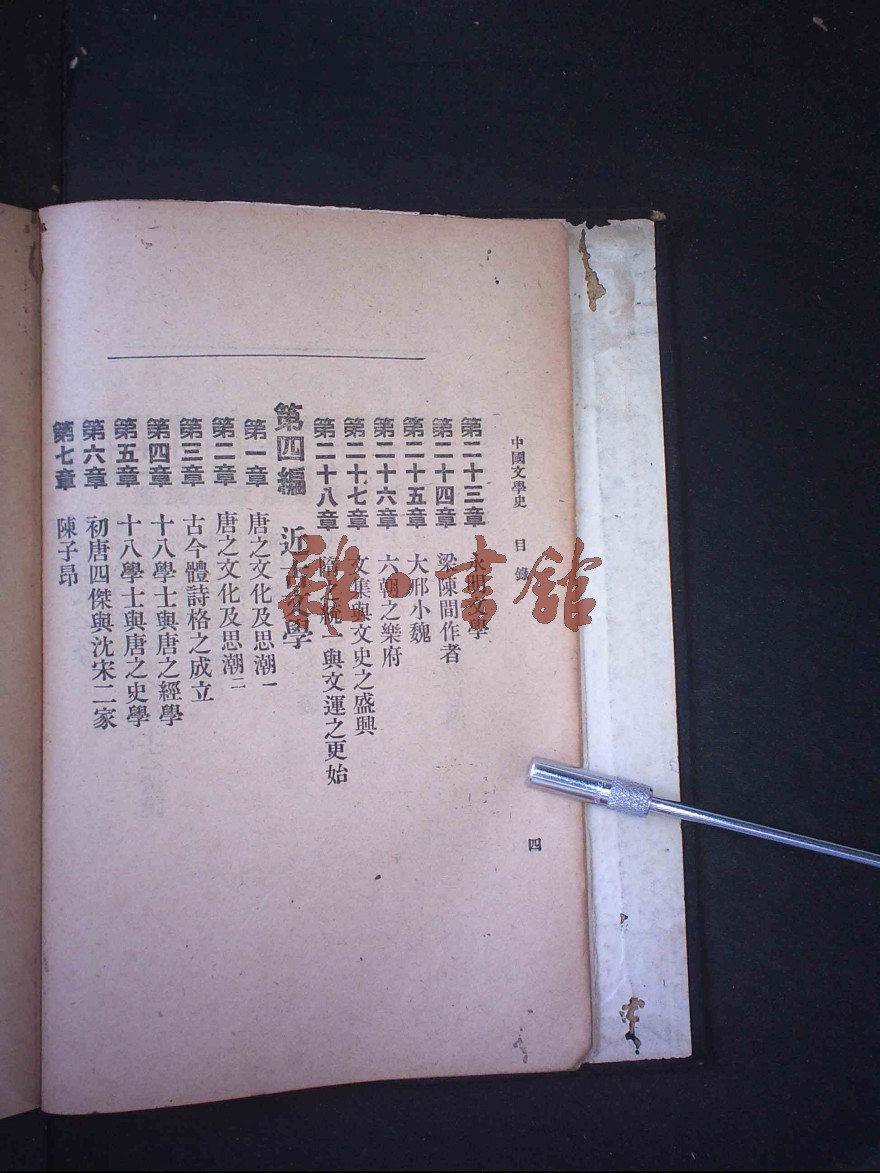 中國文學史 目錄
四
第二十三章 永明文學
第二十四章 梁陳間作者
第二十五章 大邢小魏
第二十六章 六朝之樂府
第二十七章 文集與文史之盛興
第二十八章 隋之統一與文運之更始
第四編 近古文學
第一章 唐之文化及思潮一
第二章 唐之文化及思潮二
第三章 古今體詩格之成立
第四章 十八學士與唐之經學
第五章 十八學士與唐之史學
第六章 初唐四傑與沈宋二家
第七章 陳子昂
書館